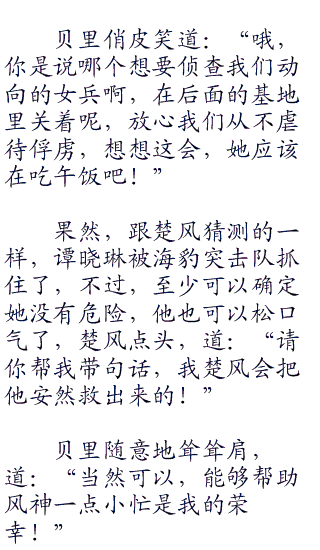 贝里俏皮笑道：“哦，
你是说哪个想要侦查我们动
向的女兵啊，在后面的基地
里关着呢，放心我们从不虐
待俘虏，想想这会，她应该
在吃午饭吧！”
果然，跟楚风猜测的一
样，谭晓琳被海豹突击队抓
住了，不过，至少可以确定
她没有危险，他也可以松口
气了，楚风点头，道：“请
你帮我带句话，我楚风会把
他安然救出来的！”
贝里随意地耸耸肩，
道：“当然可以，能够帮助
风神一点小忙是我的荣
幸！”